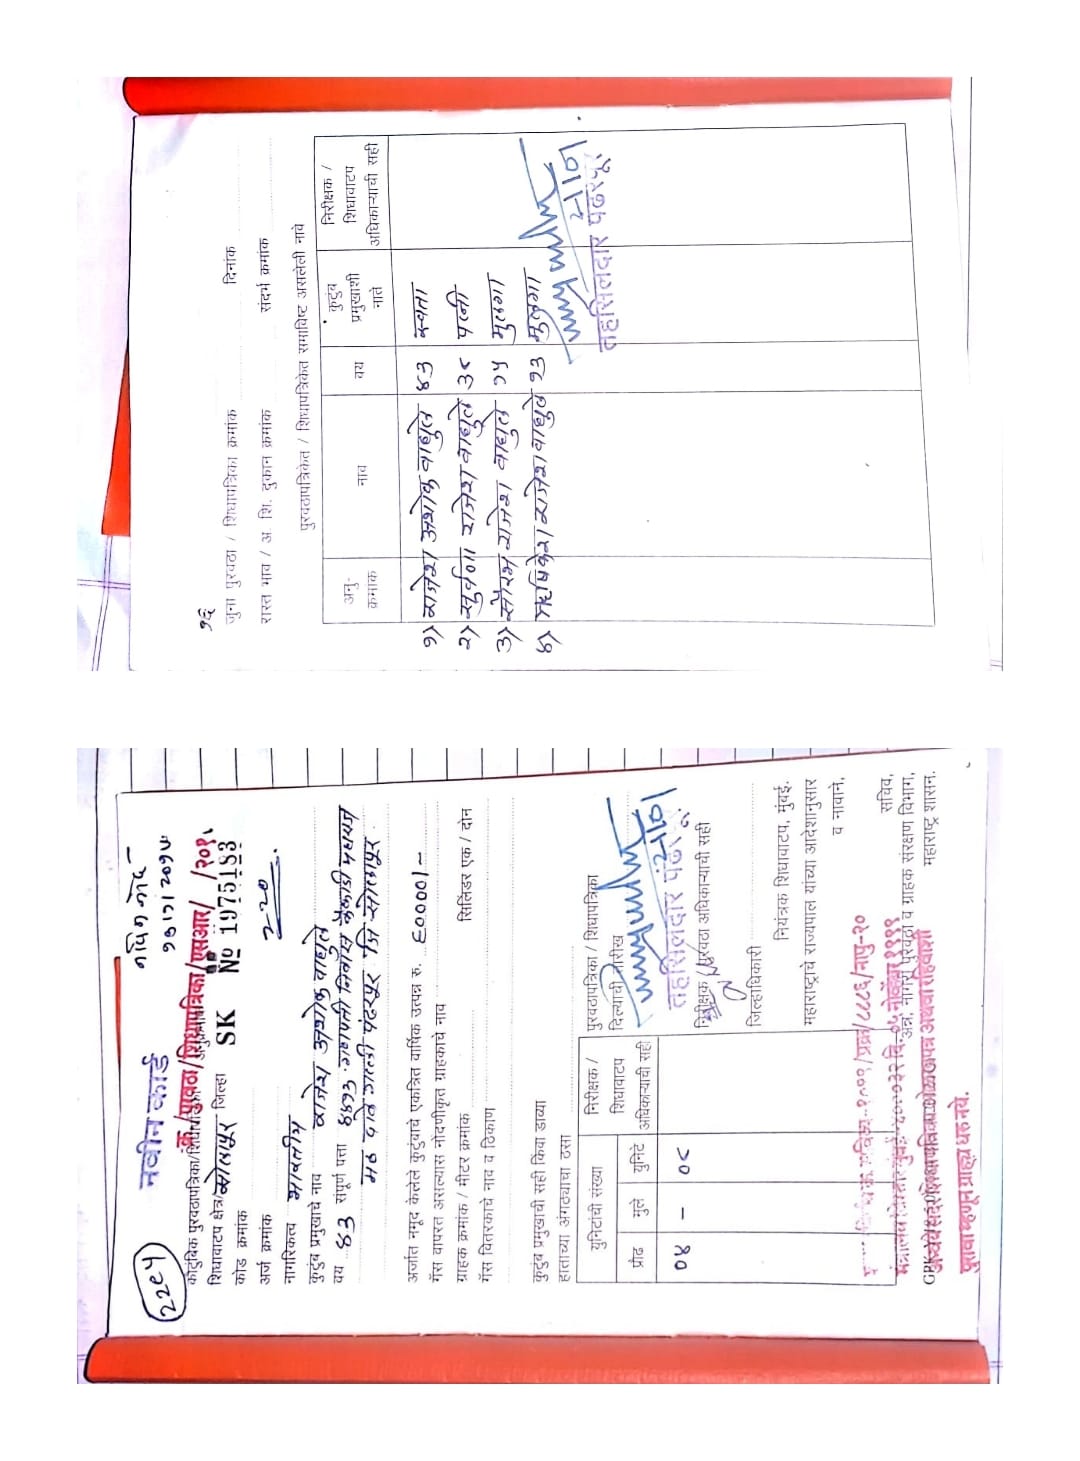 22९५
नवीन कार्ड
नविन कार्ड
क्र./पुरवठा/शिधापत्रिका/एसआर/ /२०१
कौटुंबिक पुरवठापत्रिका/शिधापत्रिका अनुक्रमांक
शिधावाटप क्षेत्र/सोलापूर जिल्हा SK № 1975183
कोड क्रमांक
अर्ज क्रमांक २२०
नागरिकत्व भारतीय
कुटुंब प्रमुखाचे नाव राजेश अशोक वाघुले
वय ४३ संपूर्ण पत्ता ४४१३ गणपती निवास कैकाडी महाराज
मठ दाळे गल्ली पंढरपूर जि सोलापूर
अर्जात नमूद केलेले कुटुंबाचे एकत्रित वार्षिक उत्पन्न रु. ६००००/-
गॅस वापरत असल्यास नोंदणीकृत ग्राहकाचे नाव
ग्राहक क्रमांक / मीटर क्रमांक सिलिंडर एक / दोन
गॅस वितरकाचे नाव व ठिकाण
कुटुंब प्रमुखाची सही किंवा डाव्या
हाताच्या अंगठ्याचा ठसा
युनिटांची संख्या
प्रौढ मुले युनिटे
निरीक्षक /
शिधावाटप
अधिकाऱ्याची सही
०४ - ०८
पुरवठापत्रिका / शिधापत्रिका
दिल्याची तारीख
तहसिलदार पंढरपूर
निरीक्षक / पुरवठा अधिकाऱ्याची सही
जिल्हाधिकारी
नियंत्रक शिधावाटप, मुंबई.
महाराष्ट्राचे राज्यपाल यांच्या आदेशानुसार
व नावाने,
सचिव,
अन्न, नागरी पुरवठा व ग्राहक संरक्षण विभाग,
महाराष्ट्र शासन.
क्र. सविप्र-१०९९/प्रक्र/८८८६/नापु-२०
मंत्रालय विस्तार मुंबई-४०००३२ दि. ०५ नोव्हेंबर १९९९
अन्वये सदर शिधापत्रिका ओळखपत्र अथवा रहिवाशी
पुरावा म्हणून ग्राह्य धरु नये.
१६
जुना पुरवठा / शिधापत्रिका क्रमांक दिनांक
रास्त भाव / अ. शि. दुकान क्रमांक संदर्भ क्रमांक
पुरवठापत्रिकेत / शिधापत्रिकेत समाविष्ट असलेली नावे
अनु-
क्रमांक
नाव
वय
कुटुंब
प्रमुखाशी
नाते
निरीक्षक /
शिधावाटप
अधिकाऱ्याची सही
१) राजेश अशोक वाघुले ४३ स्वता
२) सुर्वणा राजेश वाघुले ३८ पत्नी
३) सौरभ राजेश वाघुले १५ मुलगा
४) ऋषिकेश राजेश वाघुले १३ मुलगा
तहसिलदार पंढरपूर